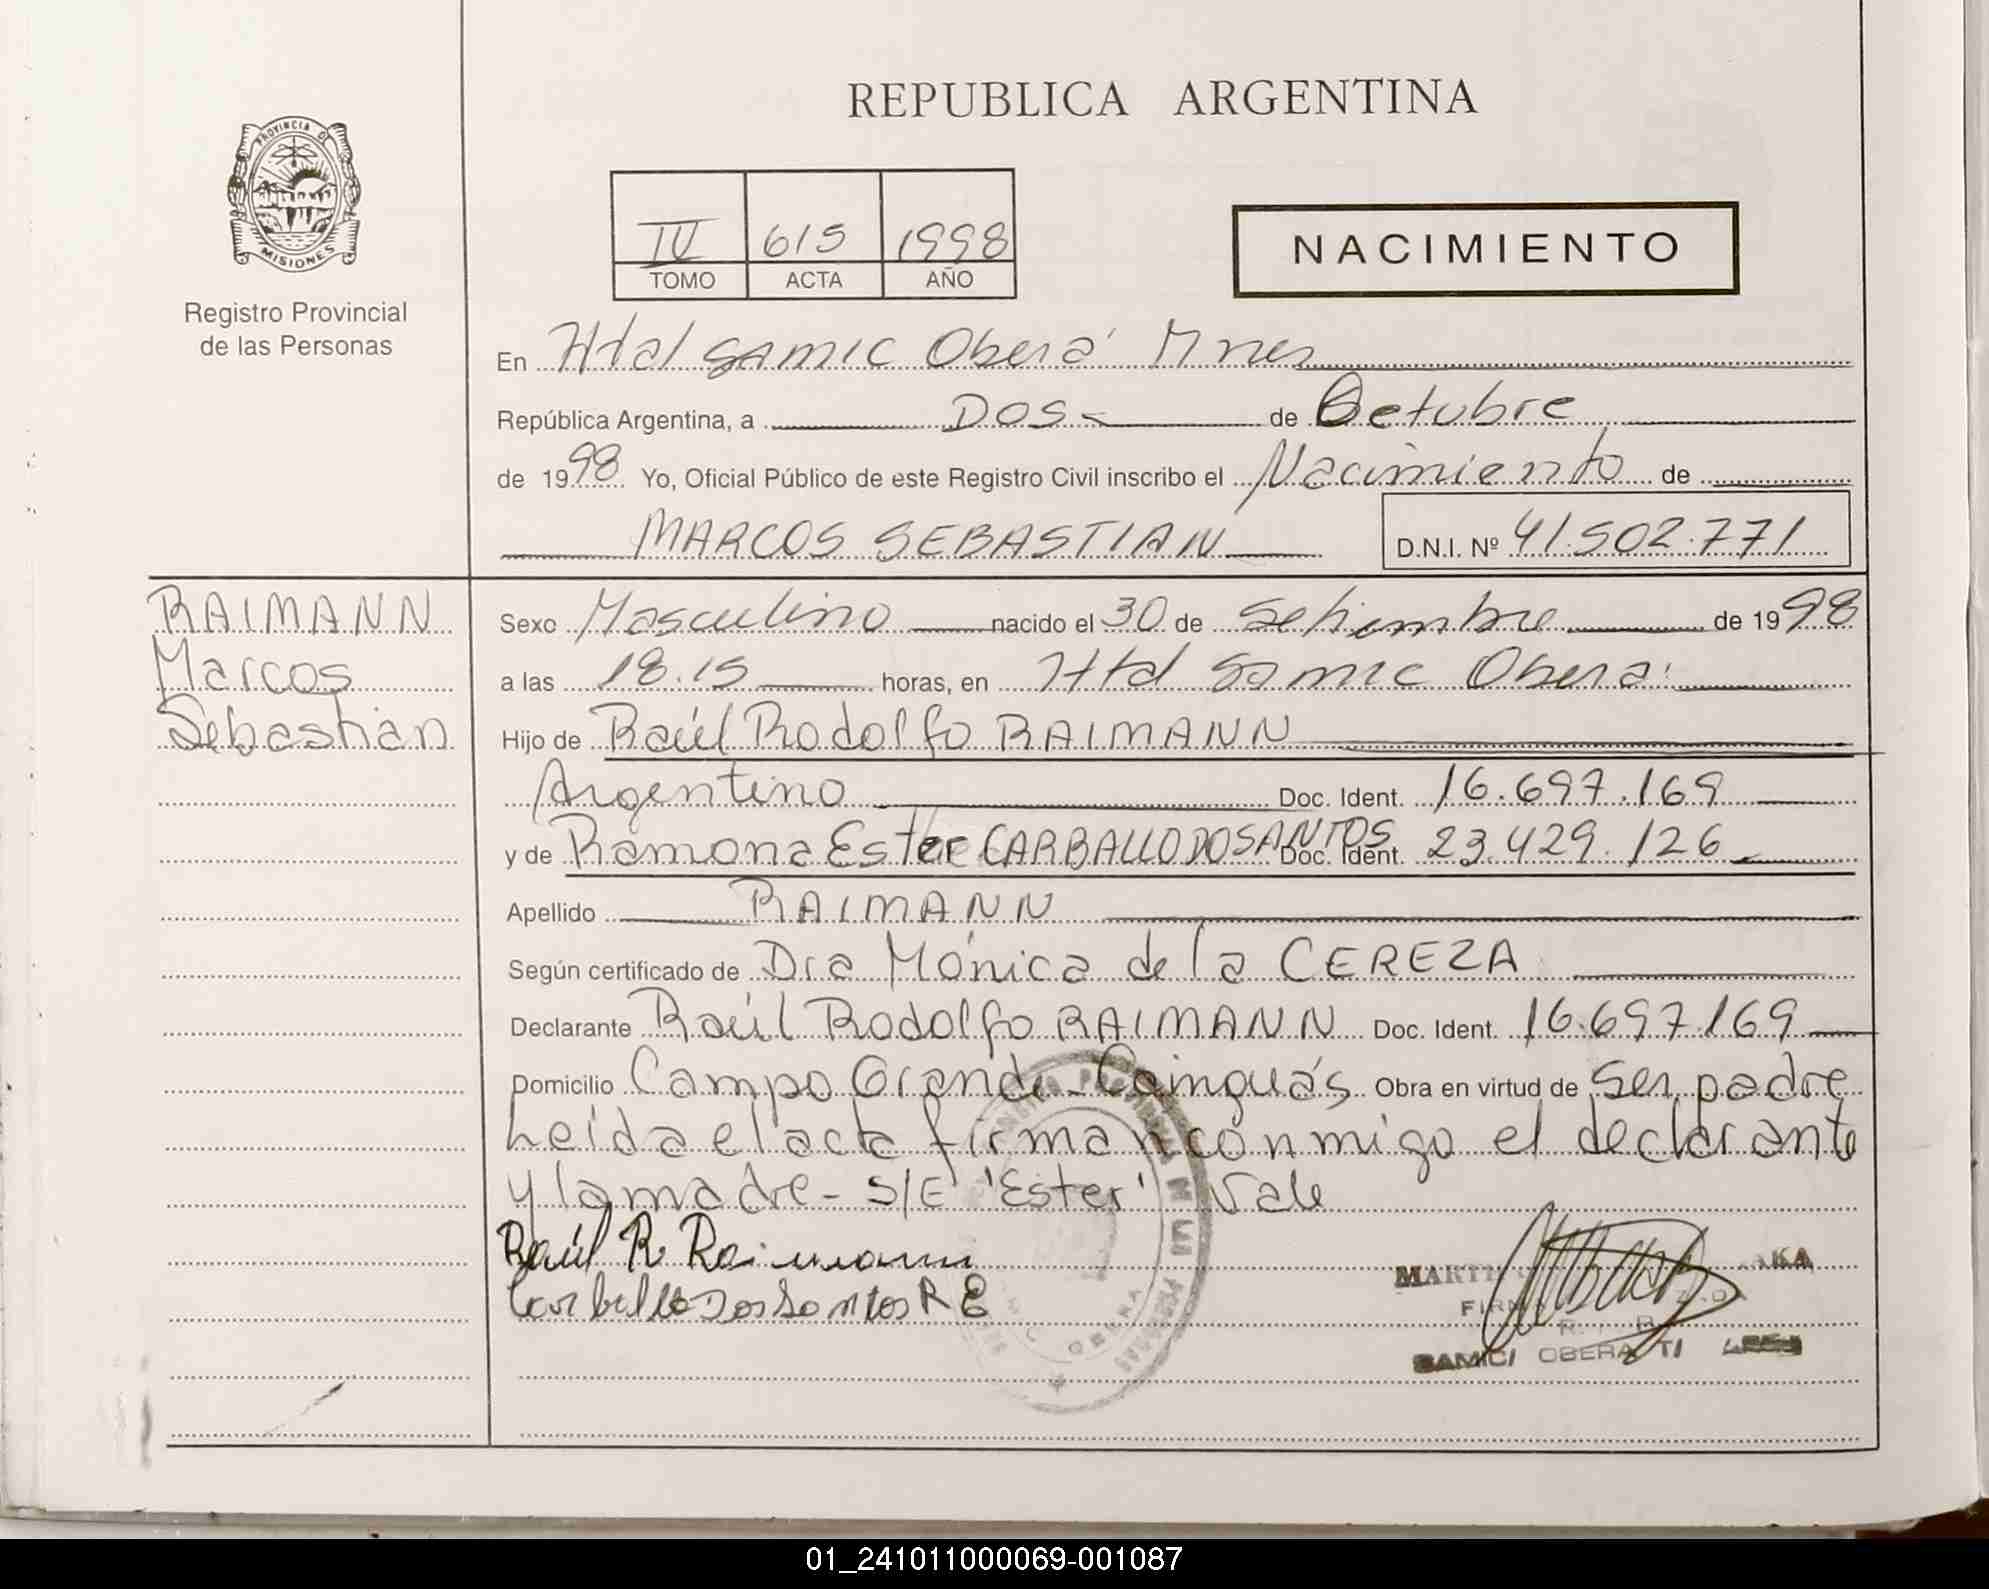 REPUBLICA ARGENTINA
PROVINCIA DE
MISIONES
Registro Provincial
de las Personas
IV 615 1998
TOMO ACTA AÑO
NACIMIENTO
En Htal SAMIC Oberá Mnes
República Argentina, a DOS- de Octubre
de 1998 Yo, Oficial Público de este Registro Civil inscribo el Nacimiento de
MARCOS SEBASTIAN D.N.I. Nº 41.502.771
RAIMANN
Marcos
Sebastián
Sexo Masculino nacido el 30 de Setiembre de 1998
a las 18.15 horas, en Htal Samic Oberá
Hijo de Raúl Rodolfo RAIMANN
Argentino Doc. Ident. 16.697.169
y de Ramona Ester CARBALLO DOSANTOS Doc. Ident. 23.429.126
Apellido RAIMANN
Según certificado de Dra Mónica de la CEREZA
Declarante Raúl Rodolfo RAIMANN Doc. Ident. 16.697.169
Domicilio Campo Grande - Cainguás Obra en virtud de ser padre
Leída el acta firman conmigo el declarante
y la madre - S/E 'Ester' Vale
Raúl R Raimann
Carballo Dos Santos R E
OBERA
SAMIC OBERA
01_241011000069-001087